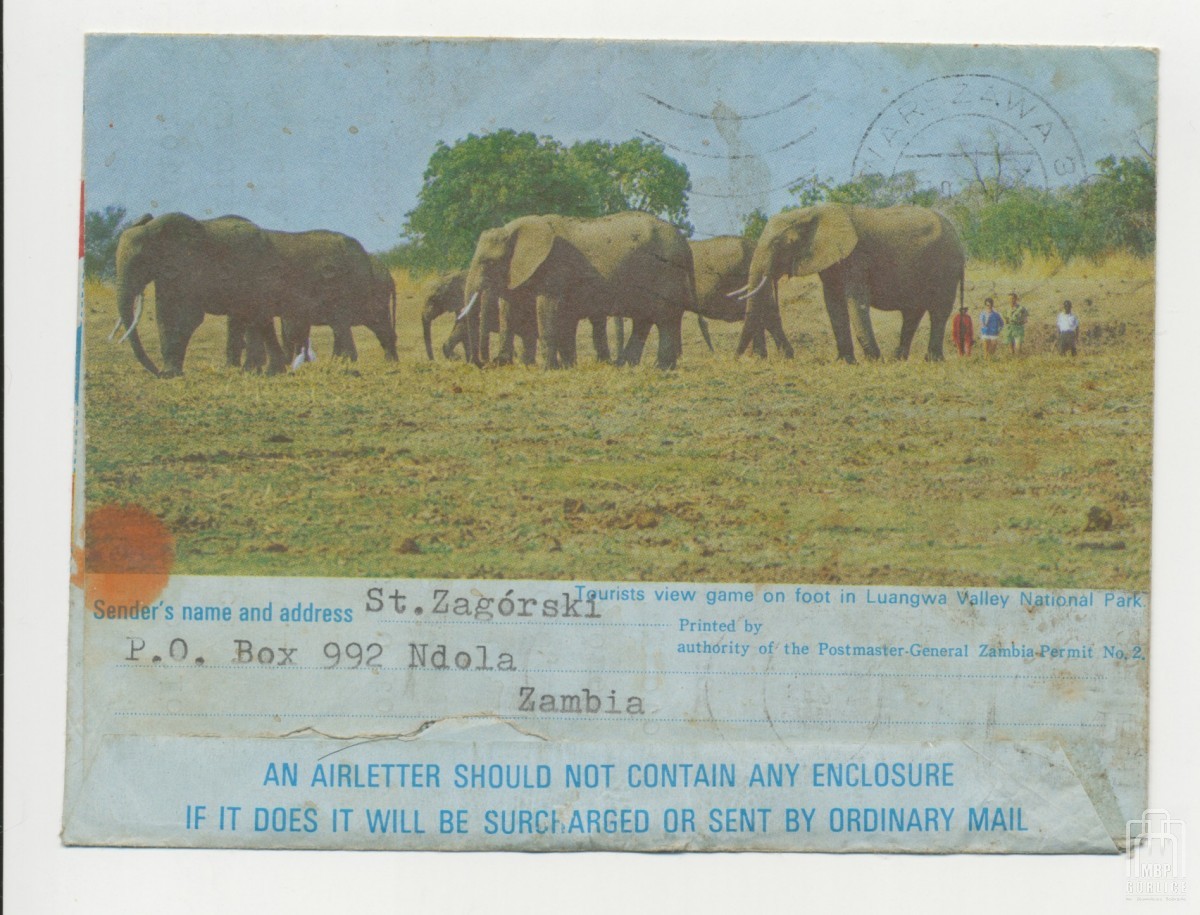 WARSZAWA 3
Tourists view game on foot in Luangwa Valley National Park.
Sender's name and address St.Zagórski
Printed by
authority of the Postmaster-General Zambia Permit No. 2.
P.O. Box 992 Ndola
Zambia
AN AIRLETTER SHOULD NOT CONTAIN ANY ENCLOSURE
IF IT DOES IT WILL BE SURCHARGED OR SENT BY ORDINARY MAIL
MBP
GORLICE